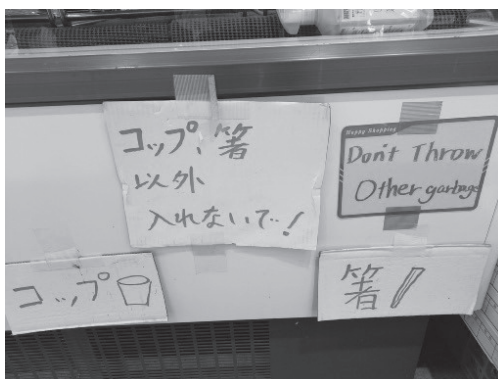 コップ、箸
以外
入れないで!
Happy Shopping
Don't Throw
Other garbage
コップ
箸